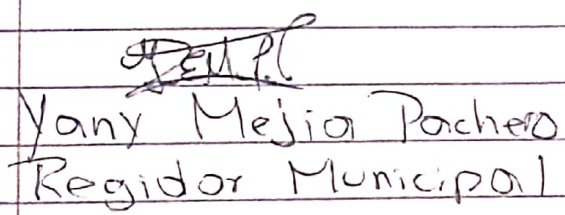 Yany Mejia Pacheco
Regidor Municipal